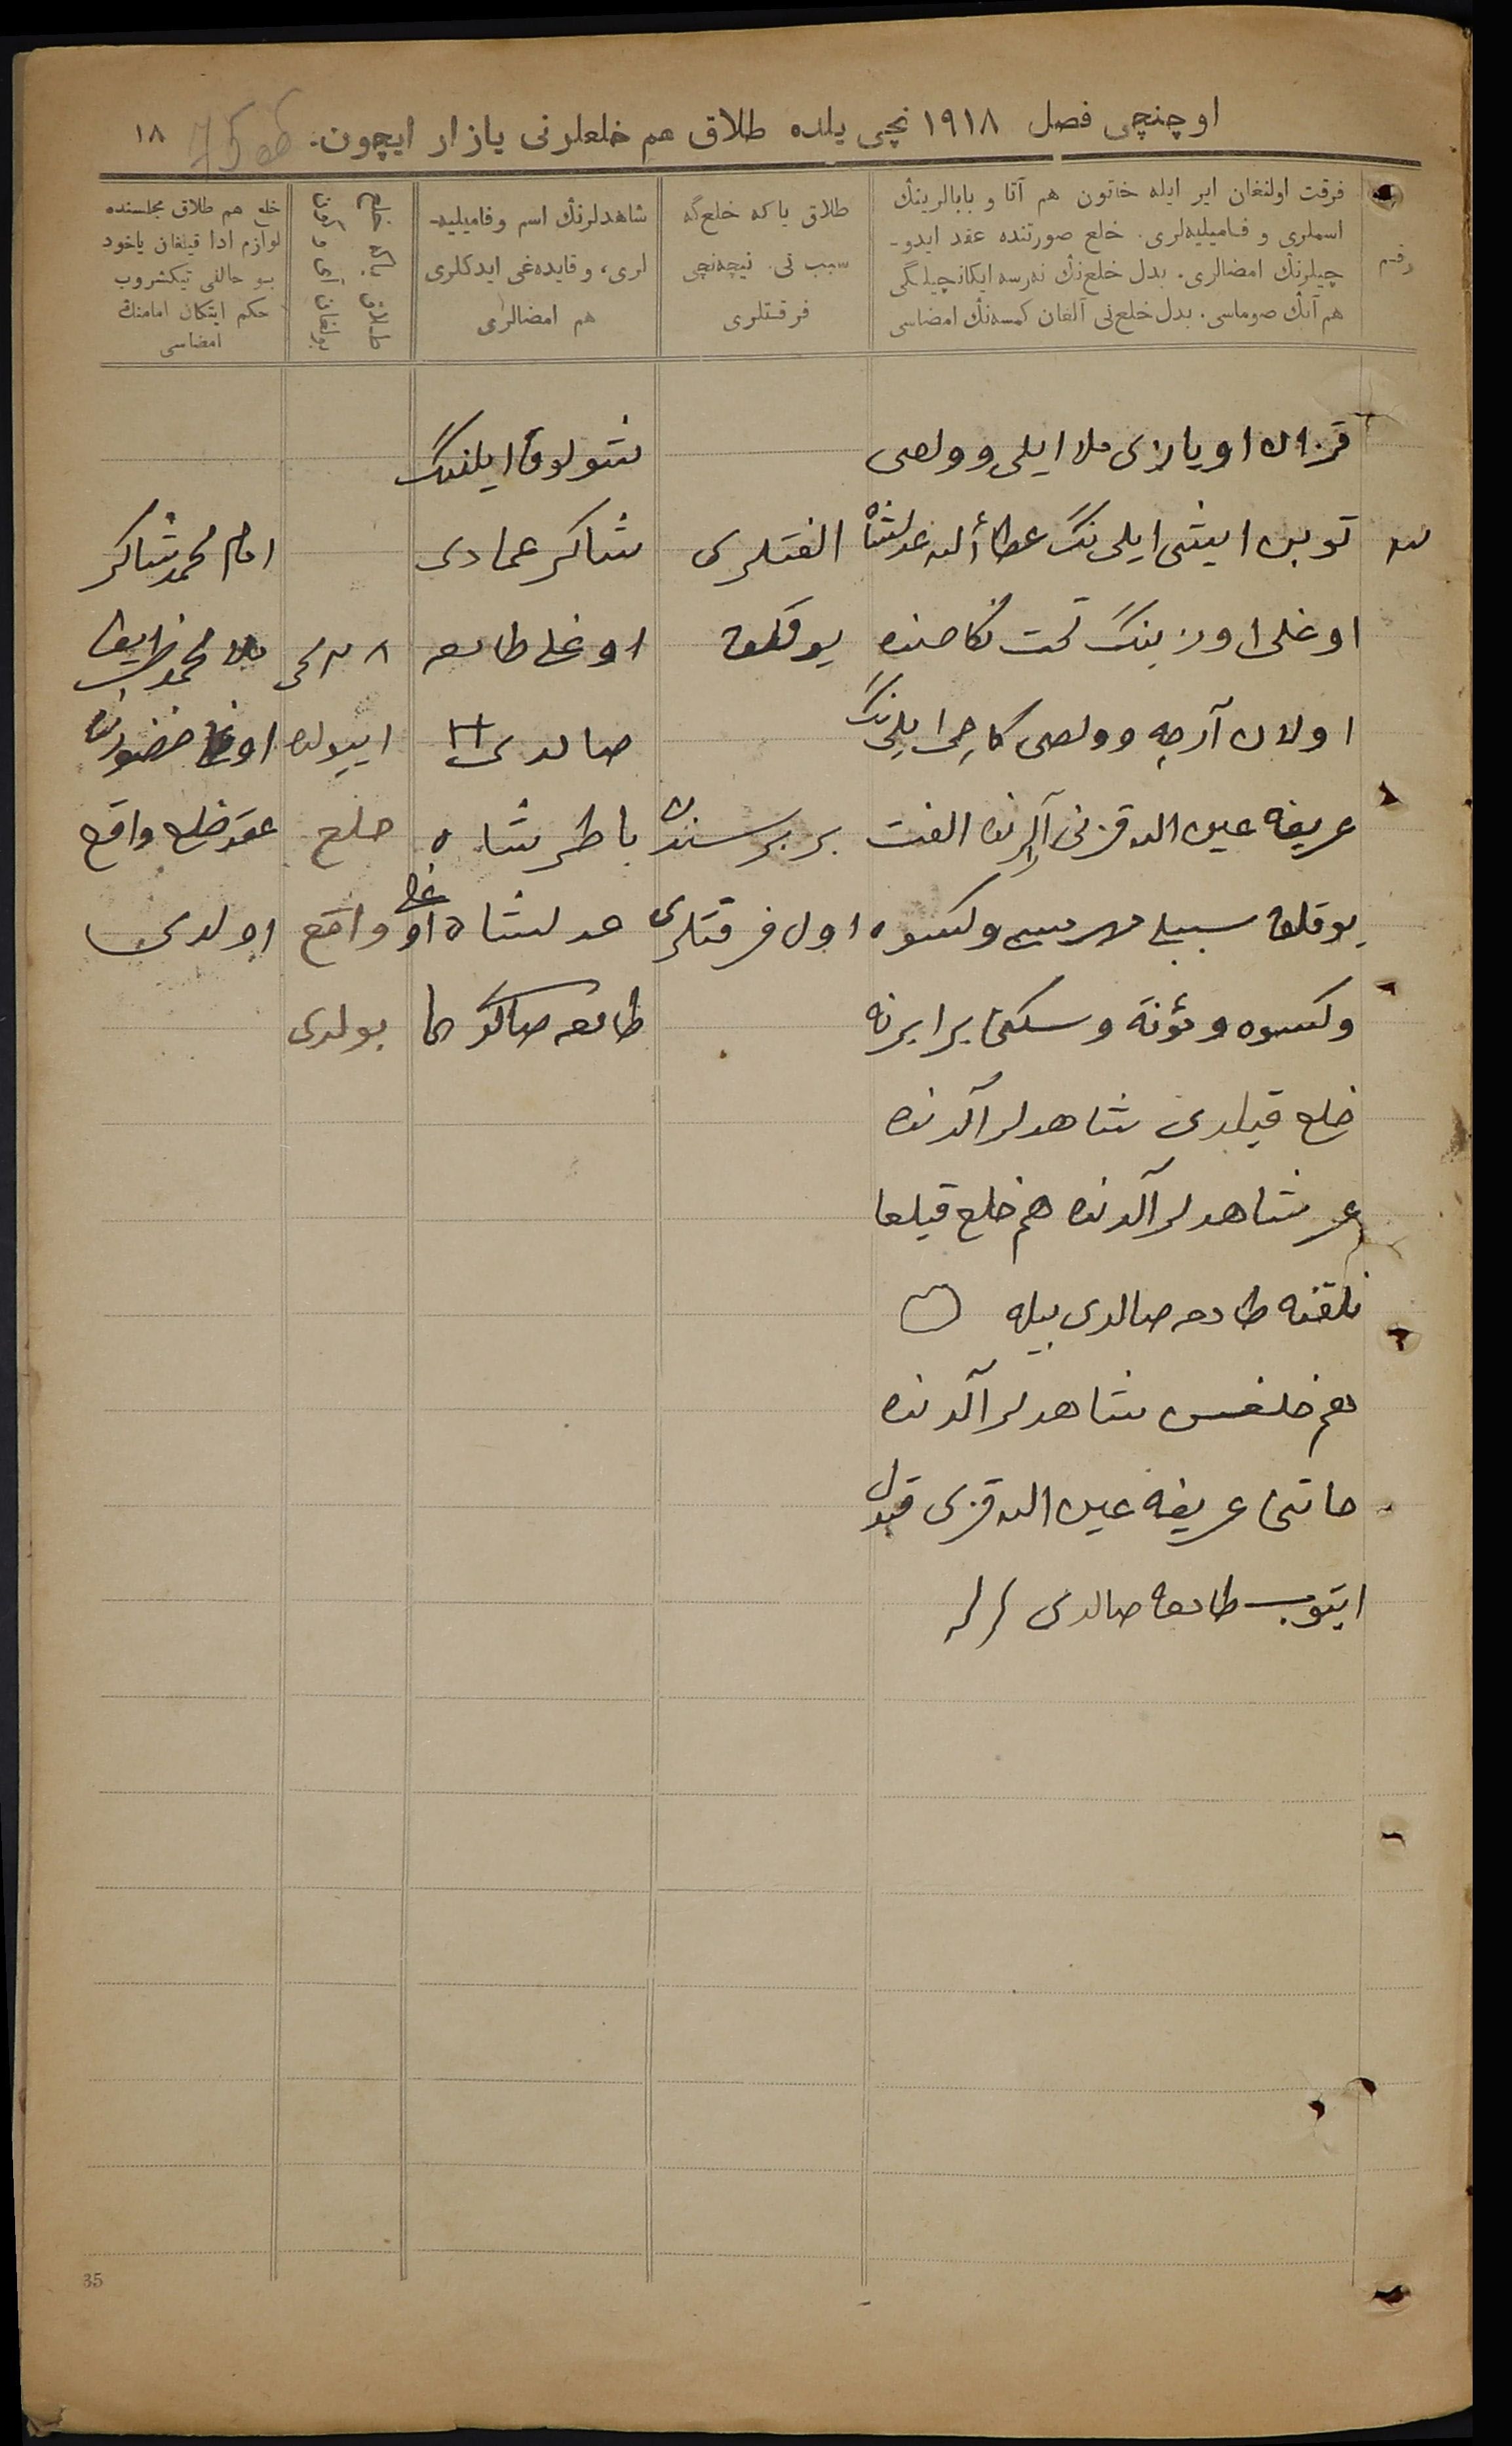 اوچنچی فصل ۱۹۱۸ نچی یلده طلاق هم خلعلرنی یازار ایچون.
۱۸
رقم
فرقت اولنغان ایر ایله خاتون هم آتا و بابالرینڭ
اسملری و فامیلیه‌لری. خلع صورتنده عقد ایدو-
چیلرنڭ امضالری. بدل خلع‌نڭ نه‌رسه ایکانچیلگی
هم آنڭ صوماسی. بدل خلع‌نی آلغان کمسه‌نڭ امضاسی
طلاق یا که خلع‌گه
سبب نی. نیچه‌نچی
فرقتلری
شاهدلرنڭ اسم و فامیلیه-
لری، و قایده‌غی ایدکلری
هم امضالری
طلاق یاکه خلع
بولغان آی و کون
خلع هم طلاق مجلسنده
لوازم ادا قیلغان یاخود
بو حالنی تیکشروب
حکم ایتکان امامنڭ
امضاسی
قزان اویازی ملا ایلی وولصی
توبن ایشی ایلی نڭ عطاءالله عدلشاه
اوغلی اوزینڭ تحت نکاحنده
اولان آرچه وولصی کاچی ایلی نڭ
عریفه عین الله قزنی آلرنده الفت
یوقلق سببلی مهر و کسوه
و کسوه و مؤنة و سکنی برابرنه
خلع قیلدی شاهدلر آلدنده
شاهدلر آلدنده هم خلع قیلغا
نلقنه طامغه صالدی بیله
هم شاهدلر آلدنده
خاتنی عریفه عین الله قزی قبول
ایتوب طامغه صالدی
الفتلری
یوقلق
بر برسندن
اول فرقتلری
شولوق ایلنڭ
شاکر عمادی
اوغلی طامغه
صالدی
باطرشاه
عدلشاه اوغلی
طامغه صالدی
۸ نچی
اییولده
خلع
واقع
بولدی
امام محمد شاکر
ملا محمد ظریف
اوغلی حضورنده
عقد خلع واقع
اولدی
35